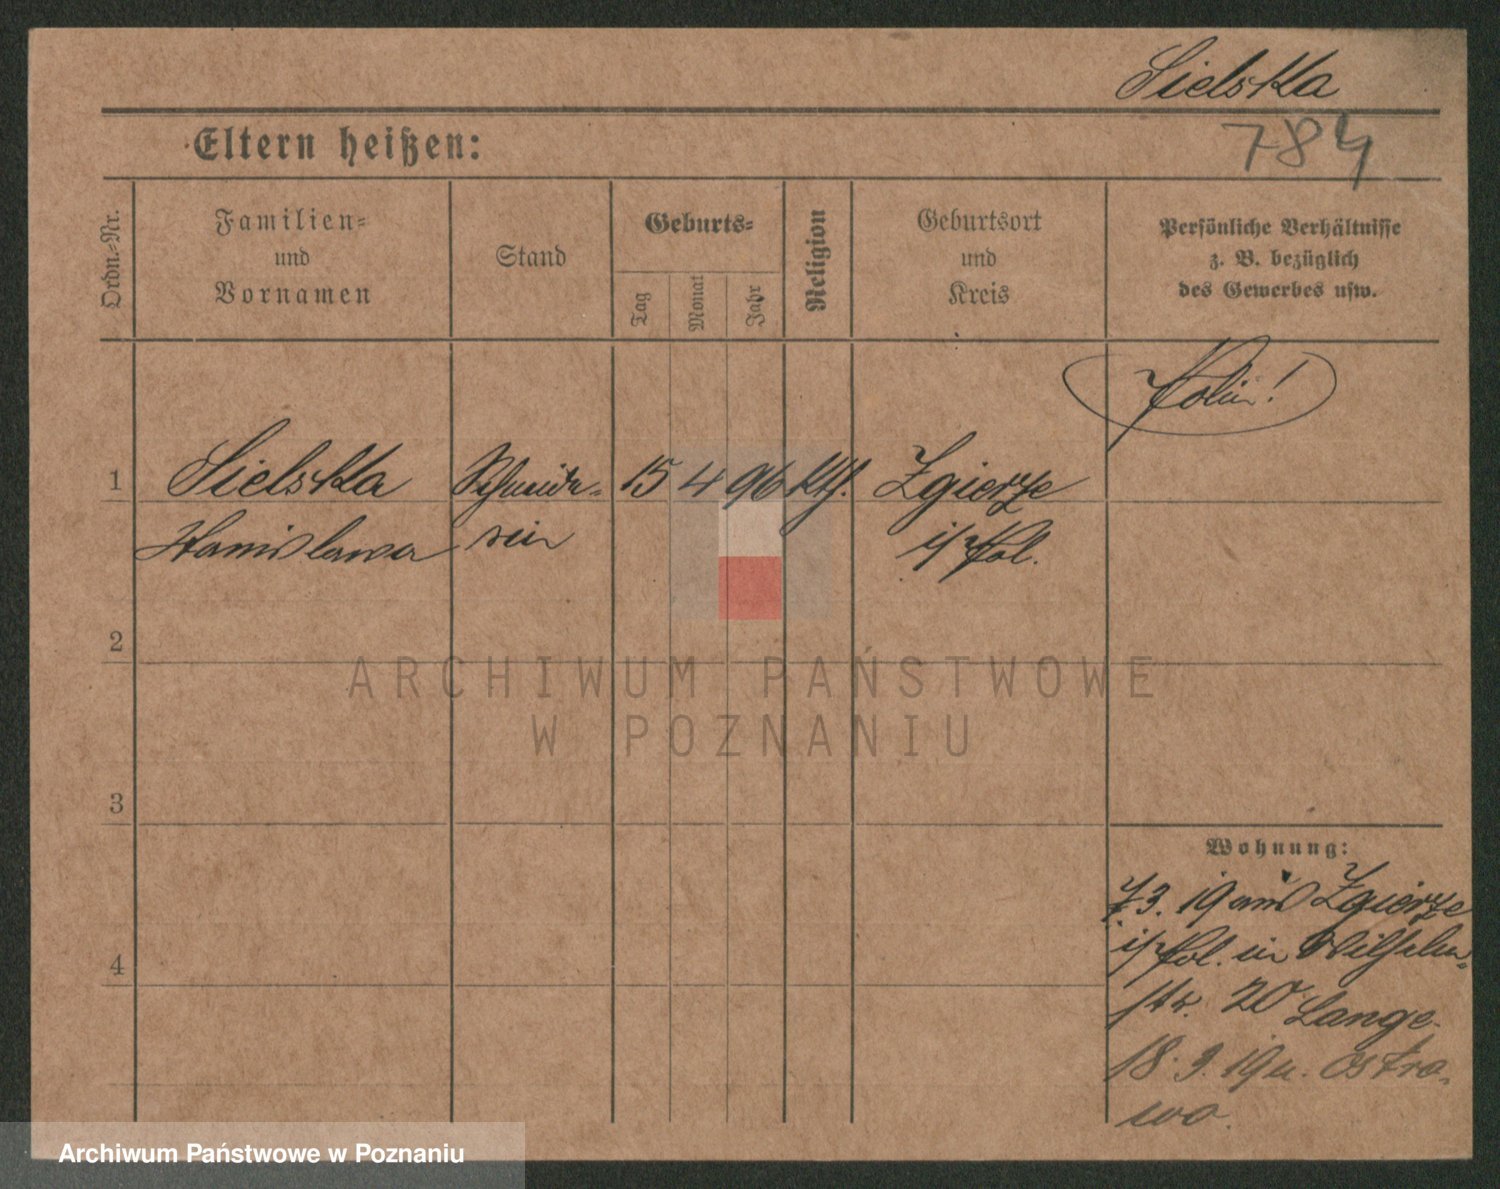 Sielska
784
Eltern heißen:
Ordn.-Nr.
Familien-
und
Vornamen
Stand
Geburts-
Tag
Monat
Jahr
Religion
Geburtsort
und
Kreis
Persönliche Verhältnisse
z. B. bezüglich
des Gewerbes usw.
Polin!
1 Sielska Schneide- 15 4 96 kth. Zgierze
Stanislawa rin i/Pol.
2
ARCHIWUM PAŃSTWOWE
W POZNANIU
3
Wohnung:
7.3.19 aus Zgierze
i/Pol. in Wilhelm-
str. 20 Lange.
18.9.19 n. Ostro-
wo.
4
Archiwum Państwowe w Poznaniu